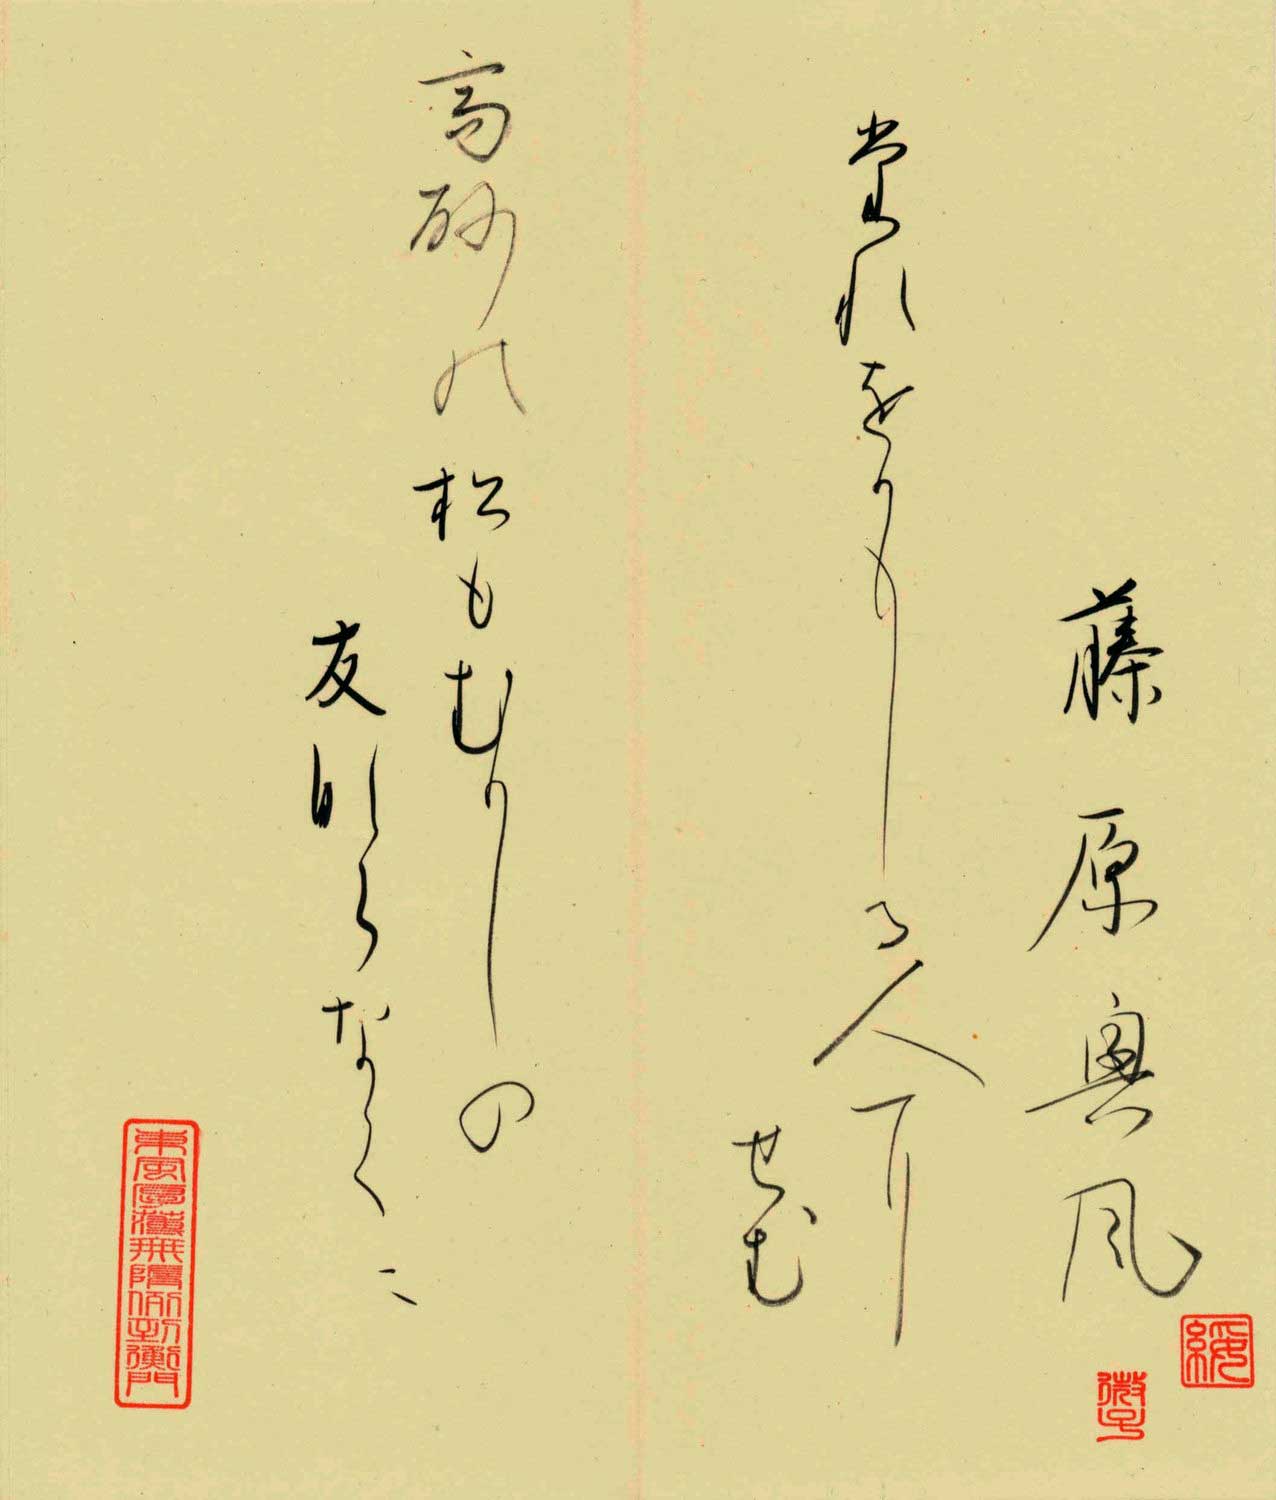 藤原興風
堂れをかもしる人耳
せむ
高砂能松もむかしの
友那らなくに
綏